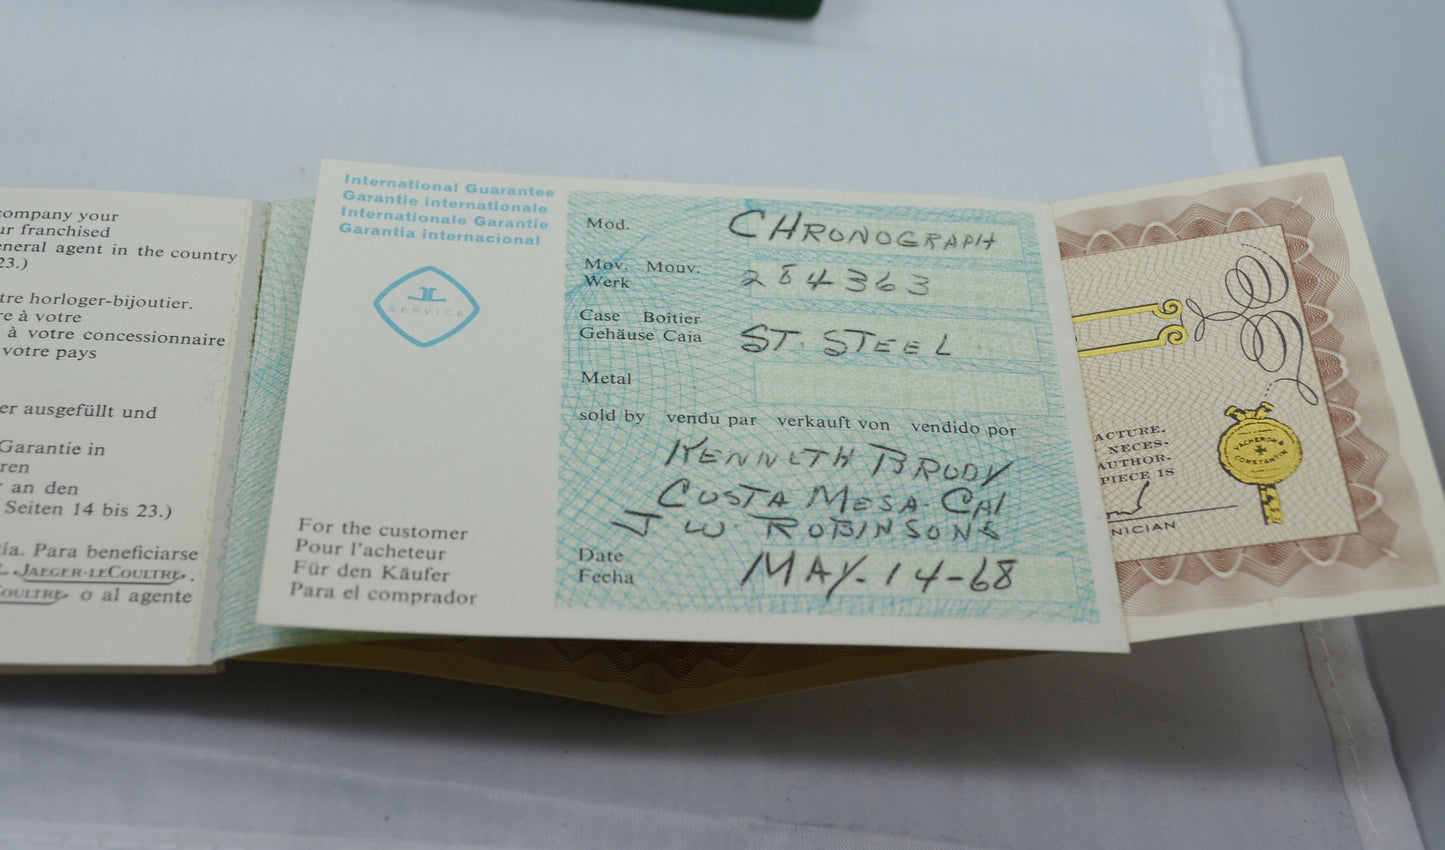 company your
ur franchised
eneral agent in the country
23.)
tre horloger-bijoutier.
re à votre
à votre concessionnaire
votre pays
er ausgefüllt und
Garantie in
ren
r an den
Seiten 14 bis 23.)
ía. Para beneficiarse
JAEGER-LECOULTRE.
OULTRE o al agente
International Guarantee
Garantie internationale
Internationale Garantie
Garantía internacional
SERVICE
For the customer
Pour l'acheteur
Für den Käufer
Para el comprador
Mod. CHRONOGRAPH
Mov. Mouv.
Werk 284363
Case Boîtier
Gehäuse Caja ST. STEEL
Metal
sold by vendu par verkauft von vendido por
KENNETH BRODY
COSTA MESA. CAL
J W ROBINSONS
Date
Fecha MAY-14-68
ACTURE.
NECES-
AUTHOR-
PIECE IS
NICIAN
VACHERON &
CONSTANTIN